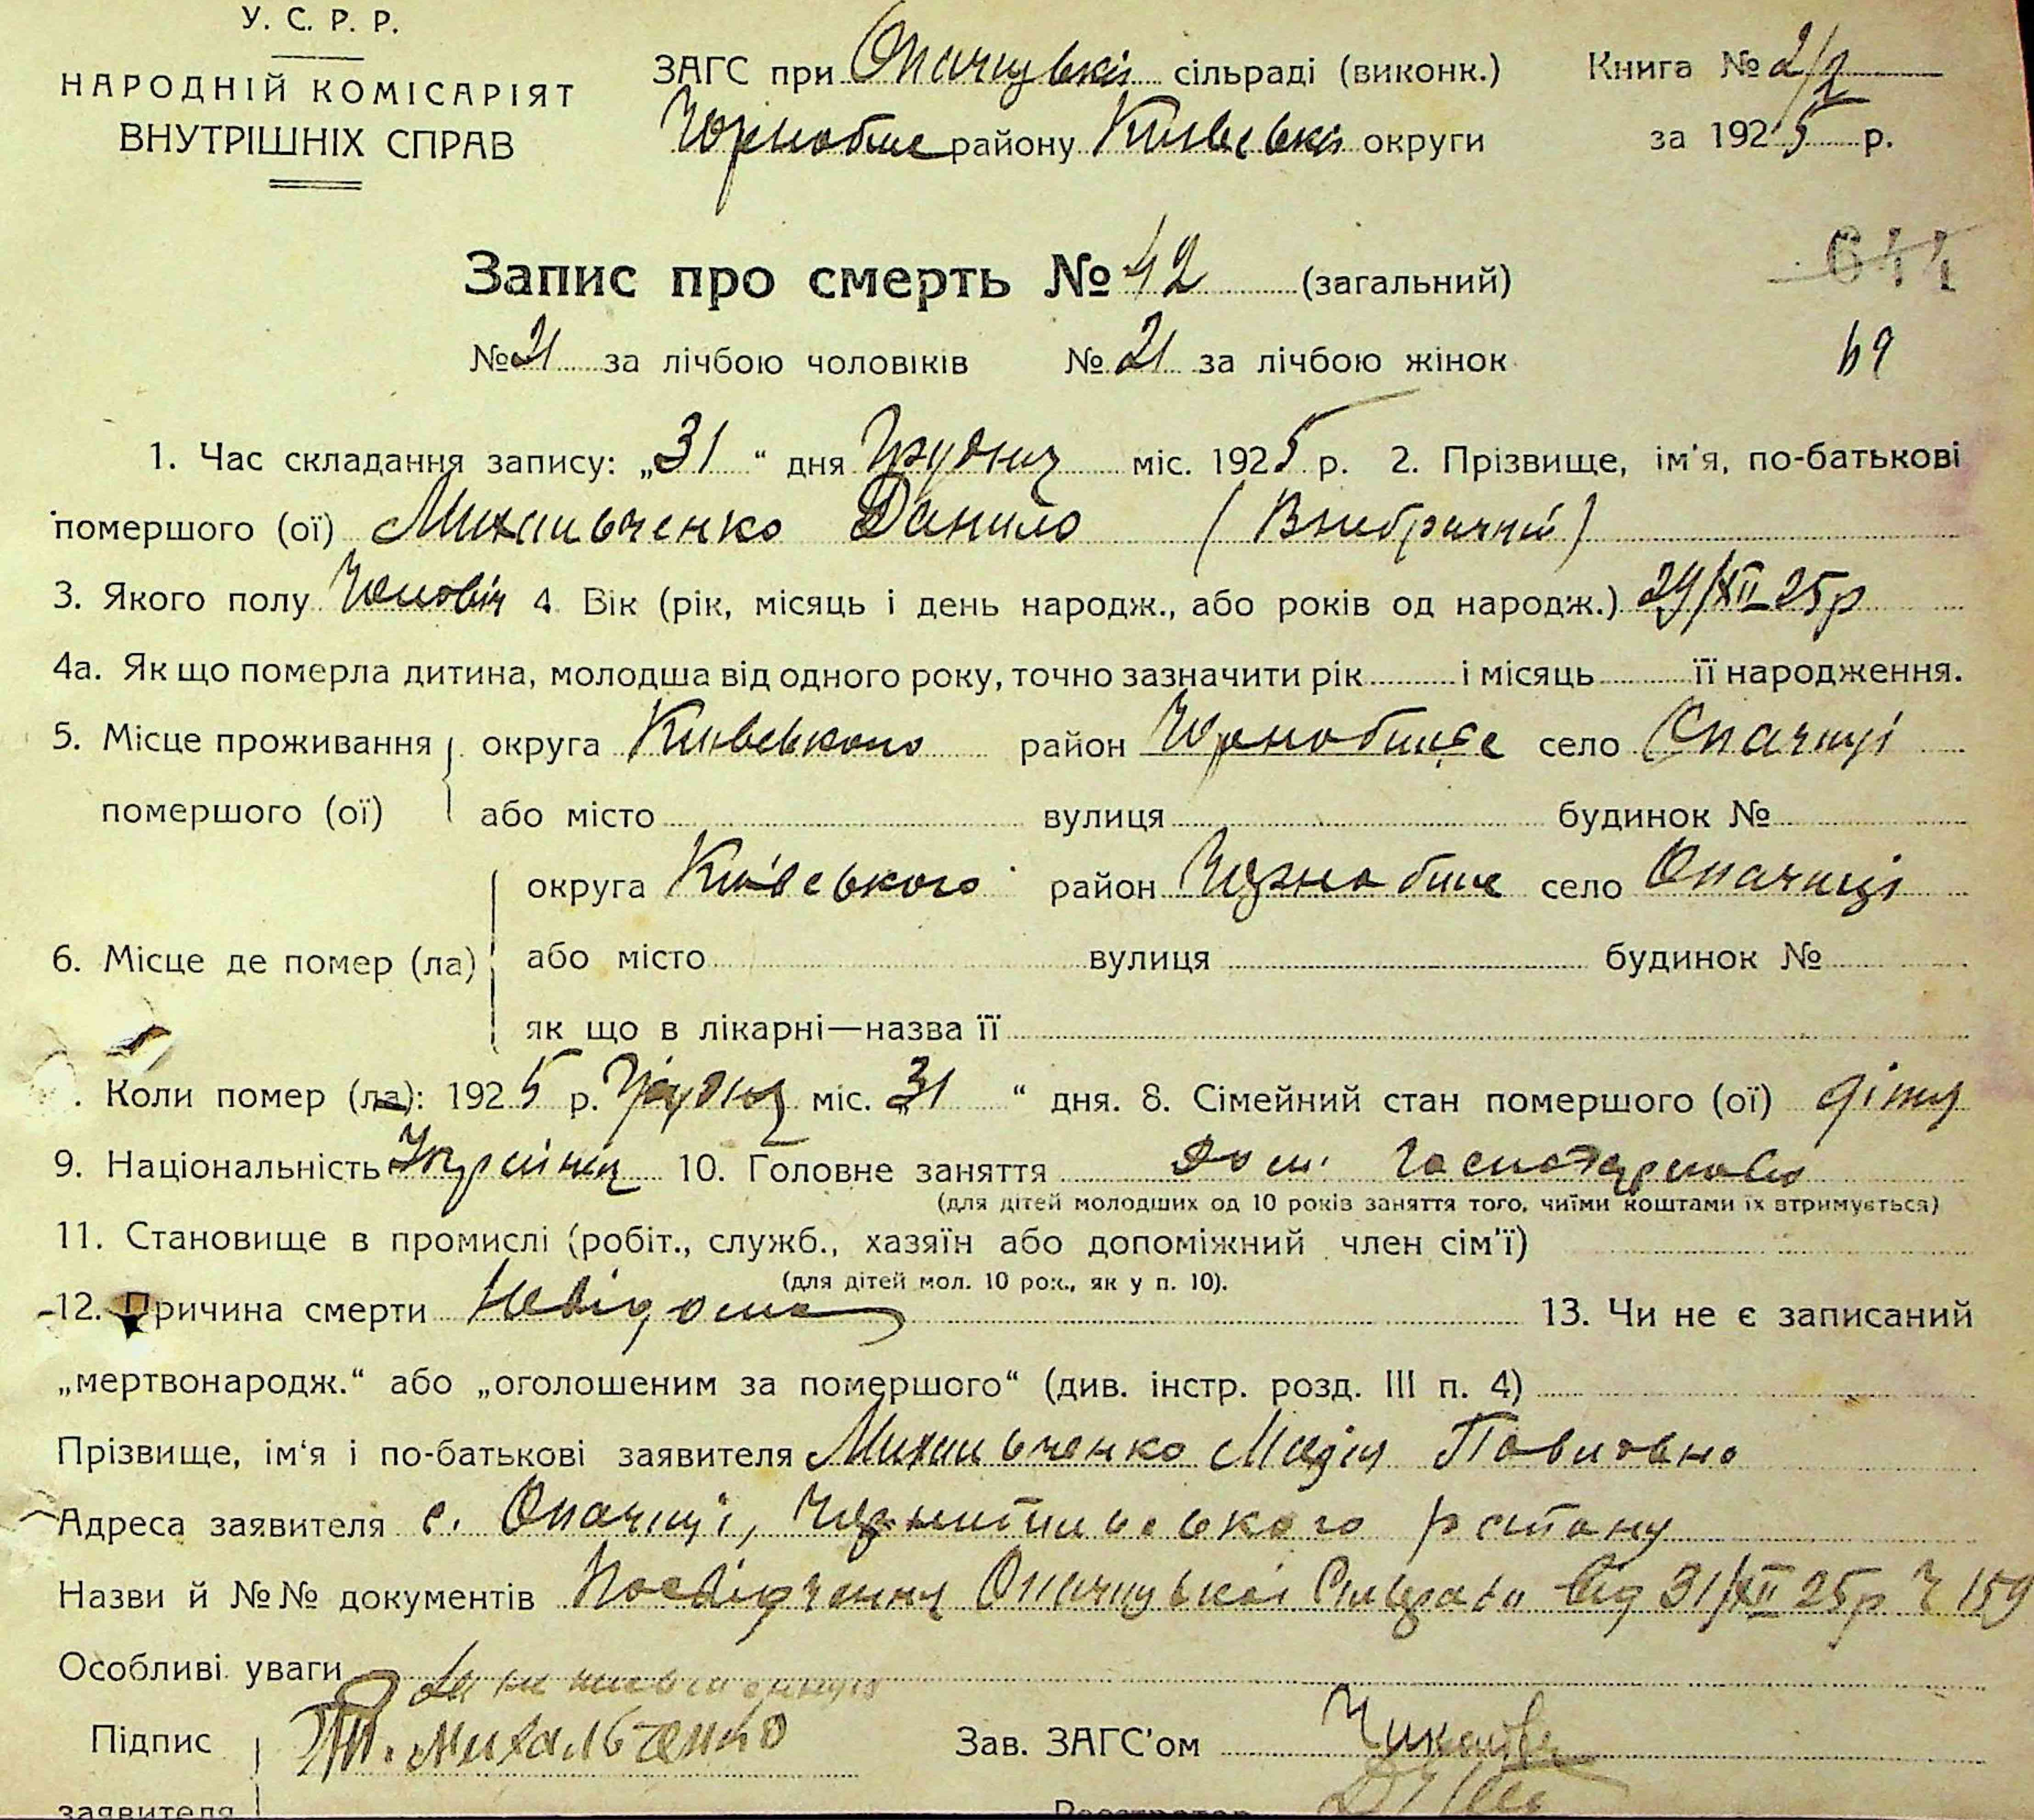 У. С. Р. Р.
НАРОДНІЙ КОМІСАРІЯТ
ВНУТРІШНІХ СПРАВ
ЗАГС при Опачицькій сільраді (виконк.)
Чорнобиле району Київської округи
Книга № 2/2
за 1925 р.
Запис про смерть № 42 (загальний)
644
№ 21 за лічбою чоловіків № 21 за лічбою жінок
69
1. Час складання запису: „31“ дня Грудня міс. 1925 р. 2. Прізвище, ім'я, по-батькові
помершого (ої) Михальченко Данило (Внебрачний)
3. Якого полу Чоловіч 4. Вік (рік, місяць і день народж., або років од народж.) 29/XII 25р
4а. Як що померла дитина, молодша від одного року, точно зазначити рік і місяць її народження.
5. Місце проживання округа Київського район село Опачиці
помершого (ої) або місто вулиця будинок №
округа Київського район Чорнобиле село Опачиці
6. Місце де помер (ла) або місто вулиця будинок №
як що в лікарні—назва її
. Коли помер (ла): 1925 р. Грудня міс. „31“ дня. 8. Сімейний стан помершого (ої) дітя
9. Національність 10. Головне заняття дом.
(для дітей молодших од 10 років заняття того, чиїми коштами їх втримується)
11. Становище в промислі (робіт., служб., хазяїн або допоміжний член сім'ї)
(для дітей мол. 10 рок., як у п. 10).
12. Причина смерти Невідома 13. Чи не є записаний
„мертвонародж.“ або „оголошеним за помершого“ (див. інстр. розд. III п. 4)
Прізвище, ім'я і по-батькові заявителя Михальченко Павловна
Адреса заявителя с. Опачиці, району
Назви й №№ документів Посвідчення Опачицької Сільради від 31/XII 25р Ч 159
Особливі уваги
Підпис Михальченко Зав. ЗАГС'ом
заявителя Реєстратор